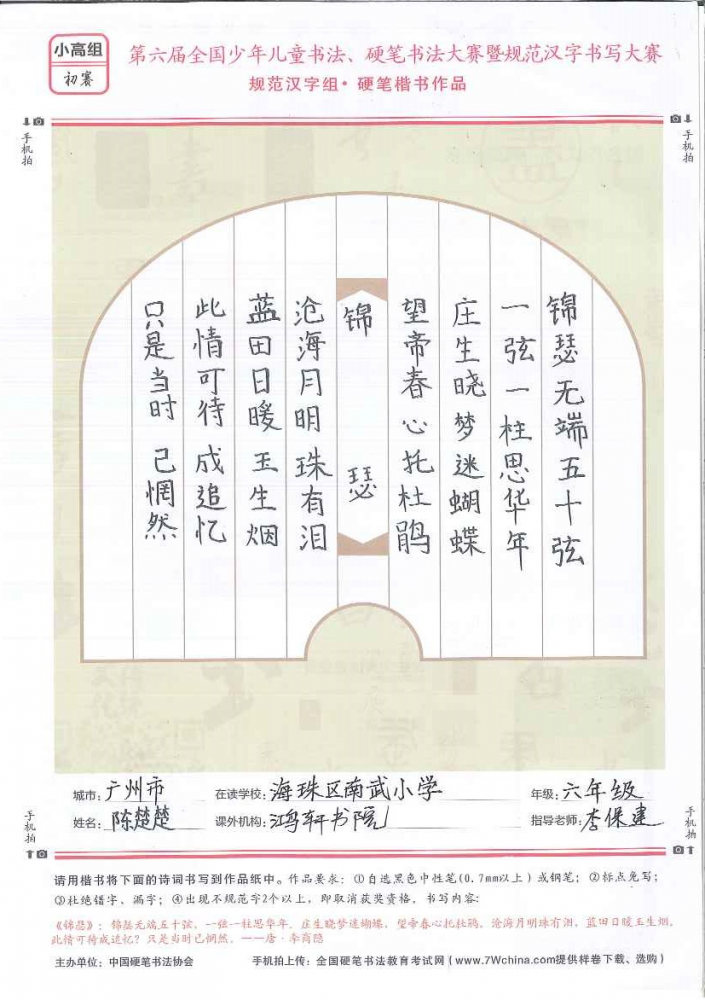 小高组
初赛
第六届全国少年儿童书法、硬笔书法大赛暨规范汉字书写大赛
规范汉字组·硬笔楷书作品
手机拍
手机拍
锦瑟无端五十弦
一弦一柱思华年
庄生晓梦迷蝴蝶
望帝春心托杜鹃
锦瑟
沧海月明珠有泪
蓝田日暖玉生烟
此情可待成追忆
只是当时已惘然
城市：广州市 在读学校：海珠区南武小学 年级：六年级
姓名：陈楚楚 课外机构：鸿轩书院 指导老师：李保建
手机拍
手机拍
请用楷书将下面的诗词书写到作品纸中。作品要求：①自选黑色中性笔(0.7mm以上)或钢笔；②标点免写；
③杜绝错字、漏字；④出现不规范字2个以上，即取消获奖资格，书写内容：
《锦瑟》：锦瑟无端五十弦，一弦一柱思华年。庄生晓梦迷蝴蝶，望帝春心托杜鹃。沧海月明珠有泪，蓝田日暖玉生烟。
此情可待成追忆？只是当时已惘然。——唐·李商隐
主办单位：中国硬笔书法协会 手机拍上传：全国硬笔书法教育考试网（www.7Wchina.com提供样卷下载、选购）